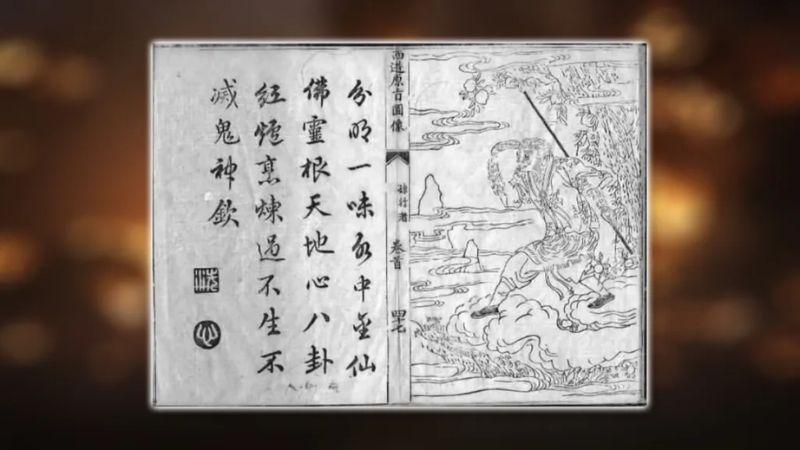 西遊原旨圖像
孫行者
卷首
分明一味水中金仙
佛靈根天地心八卦
紅爐烹煉過不生不
滅鬼神欽